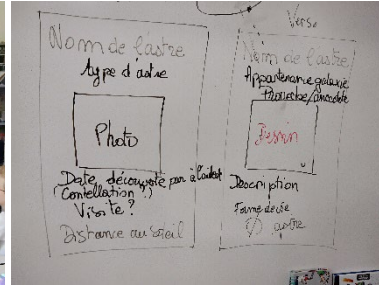 Nom de l'astre
Type d'astre
Photo
Date découverte par à l'aide
(Constellation?)
Visite?
Distance au Soleil
Verso
Nom de l'astre
Appartenance galaxie
Proverbe/anecdote
Dessin
Description
Forme
astre